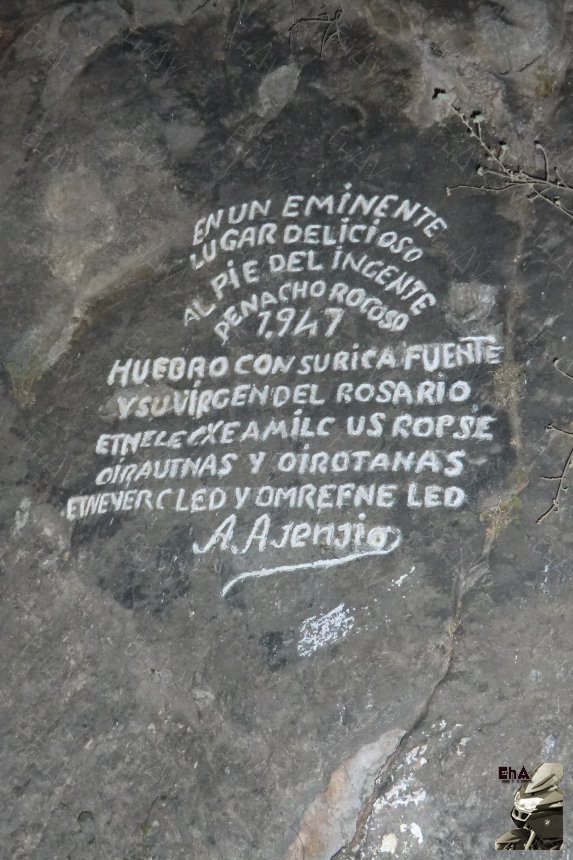 EN UN EMINENTE
LUGAR DELICIOSO
AL PIE DEL INGENTE
PENACHO ROCOSO
1.947
HUEBRO CON SU RICA FUENTE
Y SU VÍRGEN DEL ROSARIO
ETNELECXE AMILC US ROP SE
OIRAUTNAS Y OIROTANAS
ETNEYERC LED Y OMREFNE LED
A. Asensio
EhA